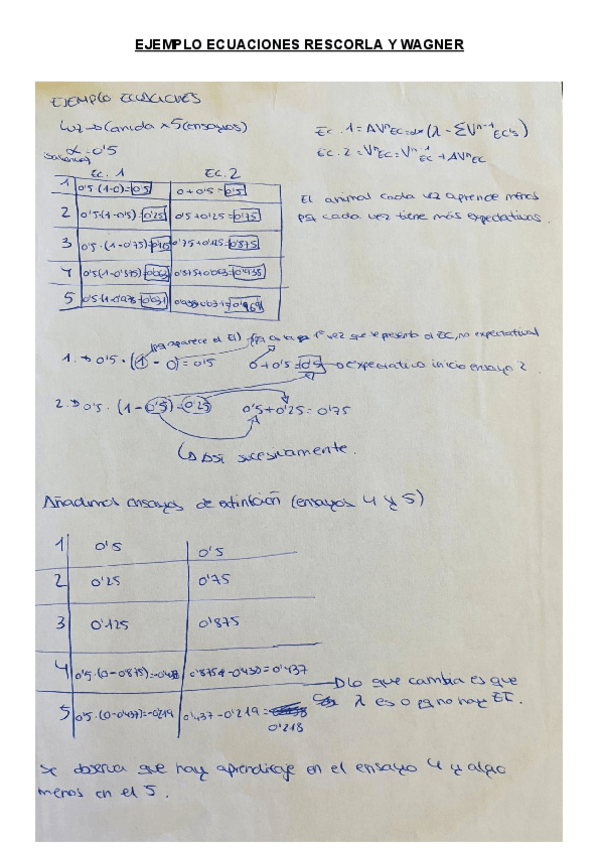 EJEMPLO ECUACIONES RESCORLA Y WAGNER
EJEMPLO ECUACIONES
Luz → Comida x 5 (ensayos)
α = 0'5
Ec. 1 = ΔVⁿEC = α (λ - ΣVⁿ⁻¹EC's)
Ec. 2 = VⁿEC = Vⁿ⁻¹EC + ΔVEC
Ec. 1 Ec. 2
1 0'5 (1-0) = 0'5 0 + 0'5 = 0'5
2 0'5 (1-0'5) = 0'25 0'5 + 0'25 = 0'75
3 0'5 · (1-0'75) = 0'75 + 0'125 = 0'875
4 0'5 (1-0'875) = 0'875 + 0'063 = 0'938
5
El animal cada vez aprende menos
pq cada vez tiene más expectativas.
(pq aparece el EI) 1ª vez que se presenta el EC, no expectativas
1. → 0'5 · (1 - 0) = 0'5 0 + 0'5 = 0'5 → expectativa inicio ensayo 2.
2. → 0'5 · (1 - 0'5) = 0'25 0'5 + 0'25 = 0'75
↳ Así sucesivamente.
Añadimos ensayos de extinción (ensayos 4 y 5)
1 0'5 0'5
2 0'25 0'75
3 0'125 0'875
4 0'5 · (0 - 0'875) = 0'437
5 0'5 · (0 - 0'437) = -0'219 0'437 - 0'219 =
0'218
→ Lo que cambia es que
λ es 0 pq no hay EI.
Se observa que hay aprendizaje en el ensayo 4 y algo
menos en el 5.